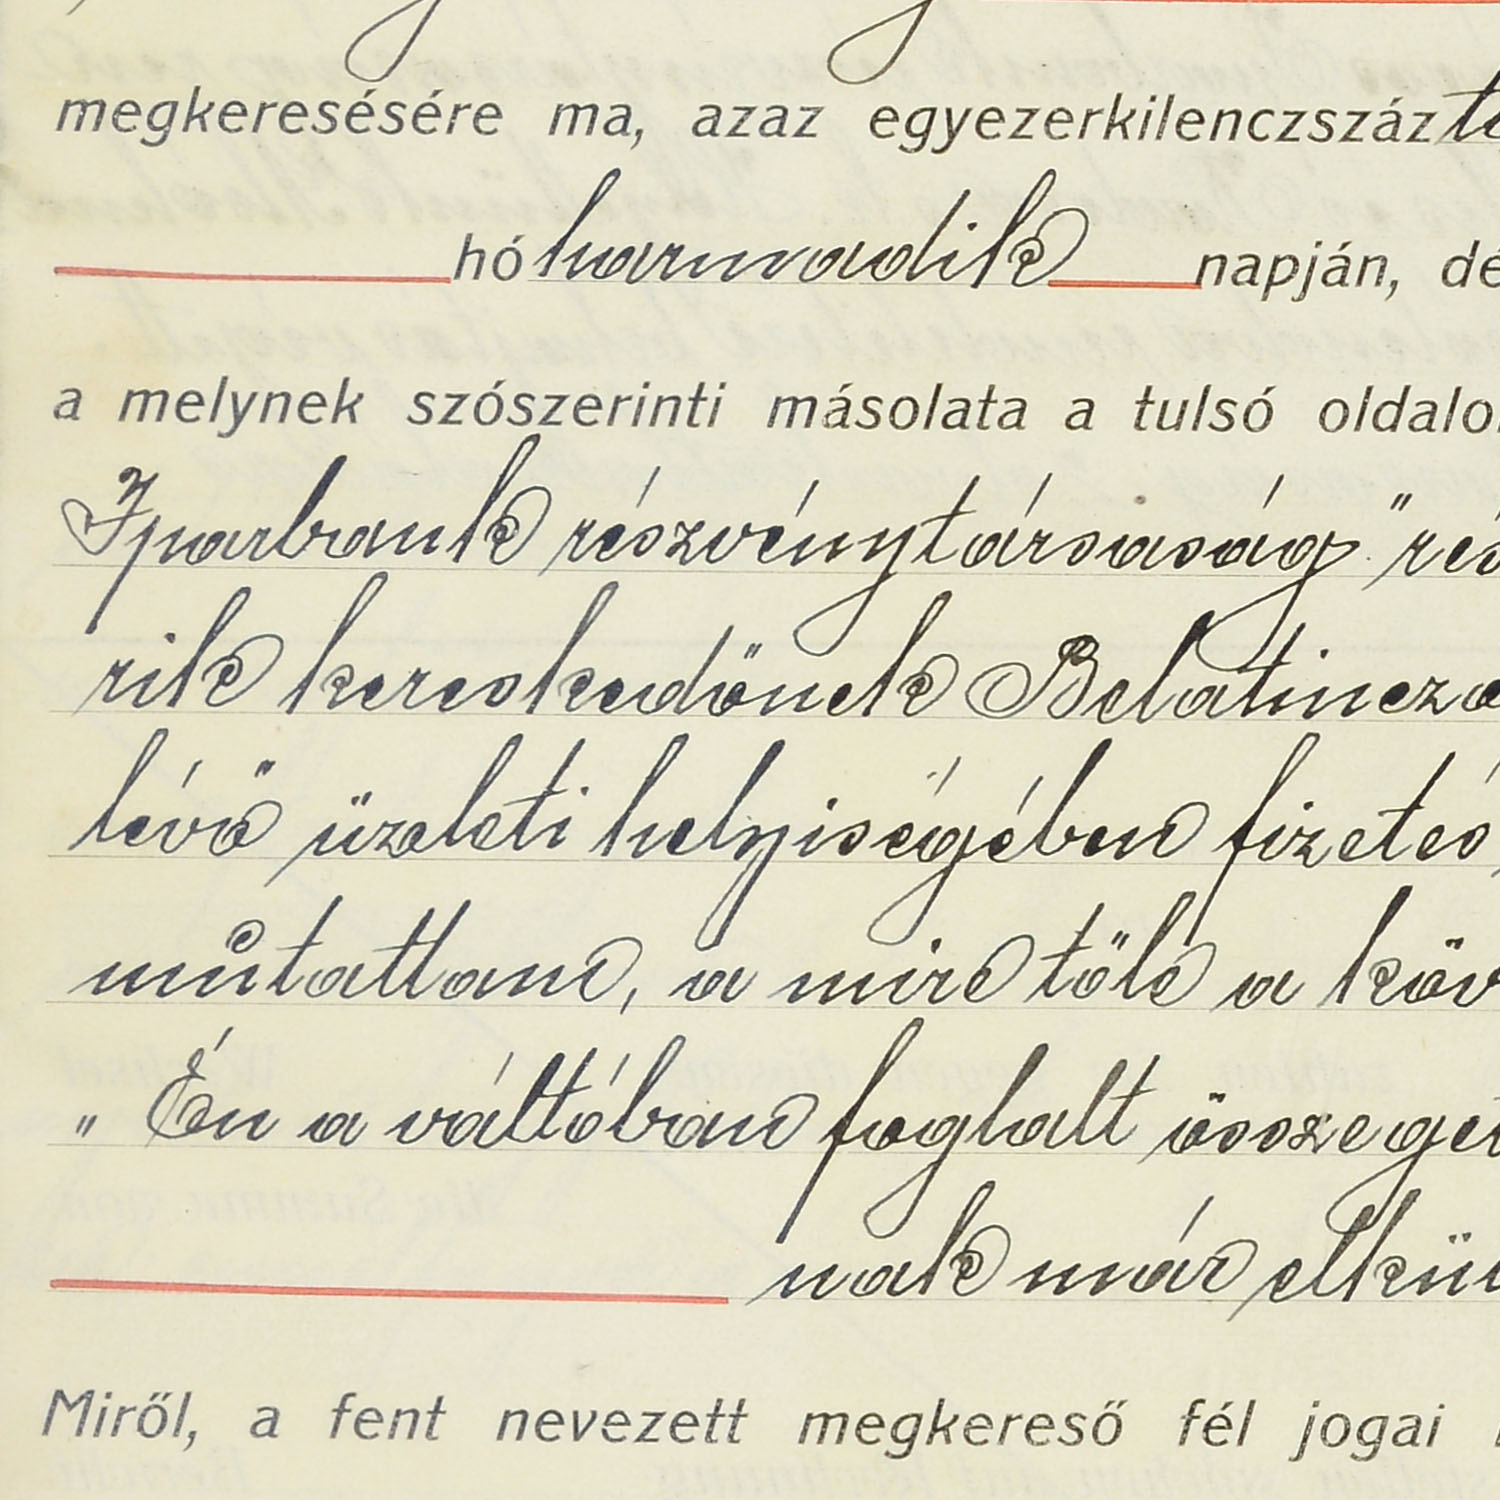 megkeresésére ma, azaz egyezerkilenczszáz
hó harmadik napján, dé
a melynek szószerinti másolata a tulsó oldalo
Iparbank részvénytársaság" rés
rik kereskedőnek Belatincza
lévő üzleti helyiségében fizetés
mutattam, a mire tőle a köv
„ Én a váltóban foglalt összeget
nak már elkü
Miről, a fent nevezett megkereső fél jogai